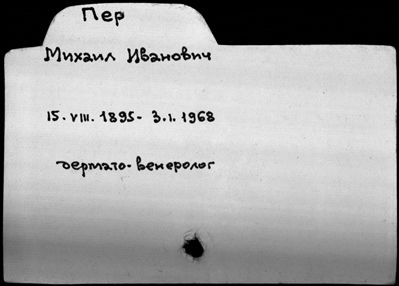 Пер
Михаил Иванович
15.VIII.1895- 3.I.1968
дермато-венеролог